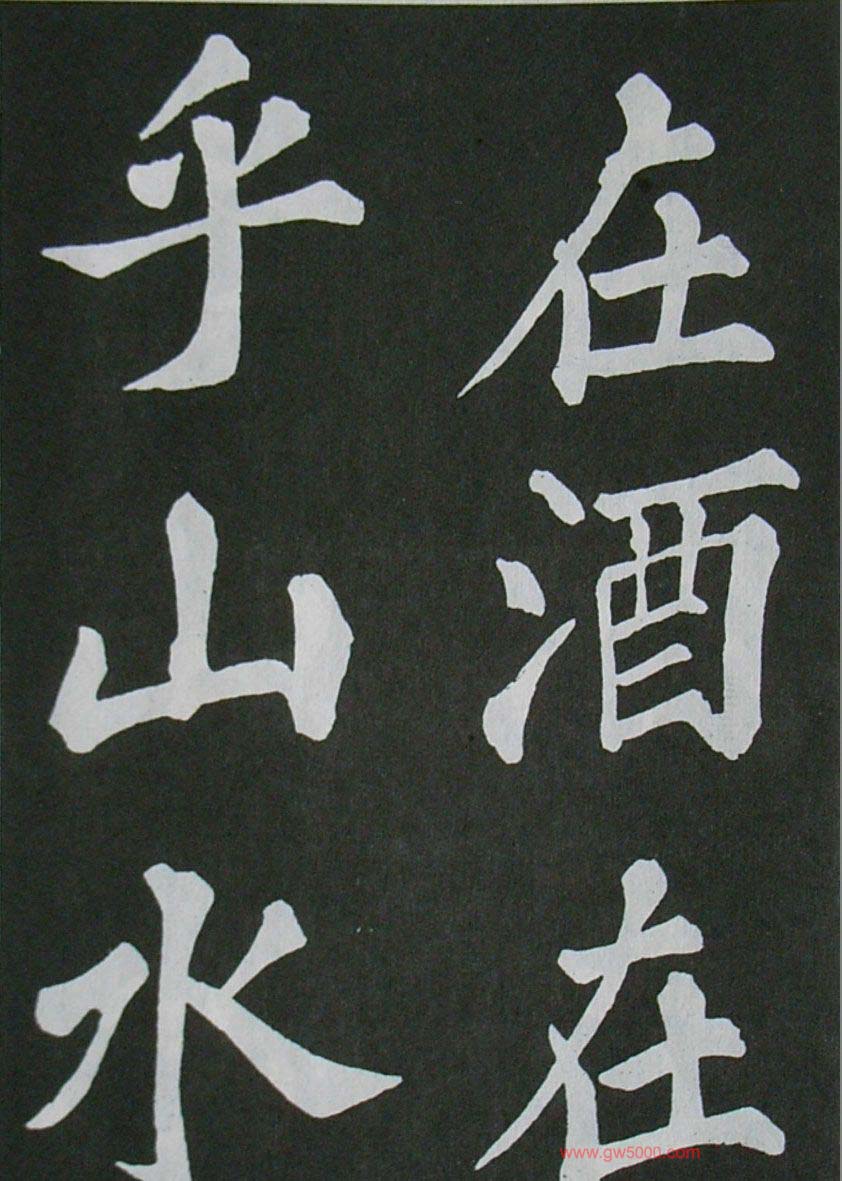 在酒在
乎山水
www.gw5000.com